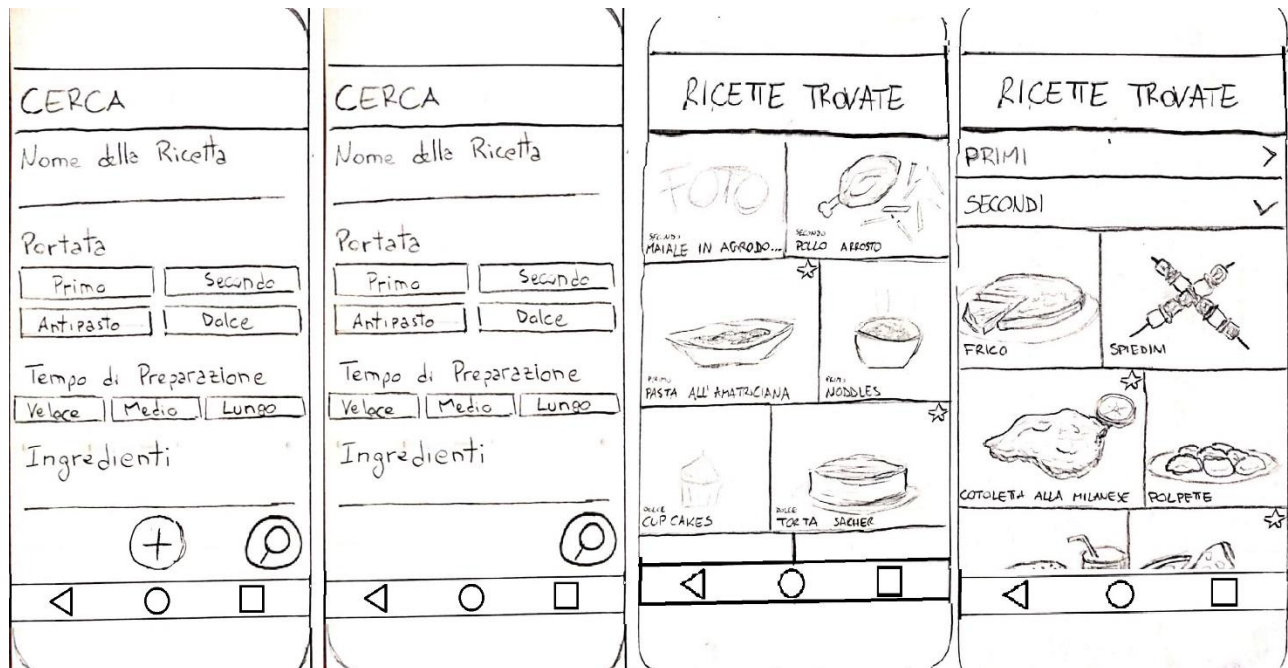 CERCA
Nome della Ricetta
Portata
Primo Secondo
Antipasto Dolce
Tempo di Preparazione
Veloce Medio Lungo
Ingredienti
CERCA
Nome della Ricetta
Portata
Primo Secondo
Antipasto Dolce
Tempo di Preparazione
Veloce Medio Lungo
Ingredienti
RICETTE TROVATE
FOTO
SECONDI
MAIALE IN AGRODO...
SECONDO
POLLO ARROSTO
PRIMI
PASTA ALL'AMATRICIANA
PRIMI
NODDLES
DOLCE
CUP CAKES
DOLCE
TORTA SACHER
RICETTE TROVATE
PRIMI
SECONDI
FRICO
SPIEDINI
COTOLETTA ALLA MILANESE
POLPETTE